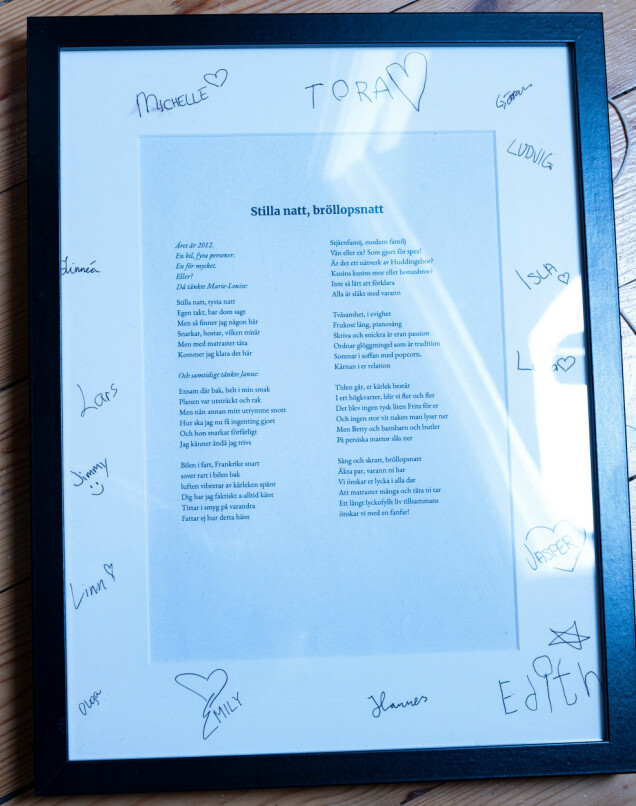 MICHELLE
TORA
LUDVIG
Linnéa
ISLA
Lars
Jimmy
JASPER
Linn
Olga
EMILY
Hannes
Edith
Stilla natt, bröllopsnatt
Året är 2012.
En bil, fyra personer.
En för mycket.
Eller?
Då tänkte Marie-Louise:
Stilla natt, tysta natt
Egen takt, har dom sagt
Men så finner jag någon här
Snarkar, hostar, vilken misär
Men med matraster täta
Kommer jag klara det här
Och samtidigt tänkte Janne:
Ensam där bak, helt i min smak
Planen var utsträckt och rak
Men nån annan mitt utrymme snott
Hur ska jag nu få ingenting gjort
Och hon snarkar förfärligt
Jag känner ändå jag trivs
Bilen i fart, Frankrike snart
sover rart i bilen bak
luften vibrerar av kärleken spänt
Dig har jag faktiskt a-alltid känt
Tittar i smyg på varandra
Fattar ej hur detta hänt
Stjärnfamilj, modern familj
Vän eller ex? Som gjort för spex!
Är det ett nätverk av Huddingebor?
Kusins kusins mor eller bonusbror?
Inte så lätt att förklara
Alla är släkt med varann
Tvåsamhet, i evighet
Frukost lång, pianosång
Skriva och snickra är eran passion
Ordnar glöggmingel som är tradition
Somnar i soffan med popcorn,
Kärnan i er relation
Tiden går, er kärlek består
I ert högkvarter, blir vi fler och fler
Det blev ingen tysk liten Fritz för er
Och ingen stor vit naken man lyser ner
Men Betty och barnbarn och butler
På persiska mattor slås ner
Sång och skratt, bröllopsnatt
Äkta par, varann ni har
Vi önskar er lycka i alla dar
Att matraster många och täta ni tar
Ett långt lyckofyllt liv tillsammans
önskar vi med en fanfar!